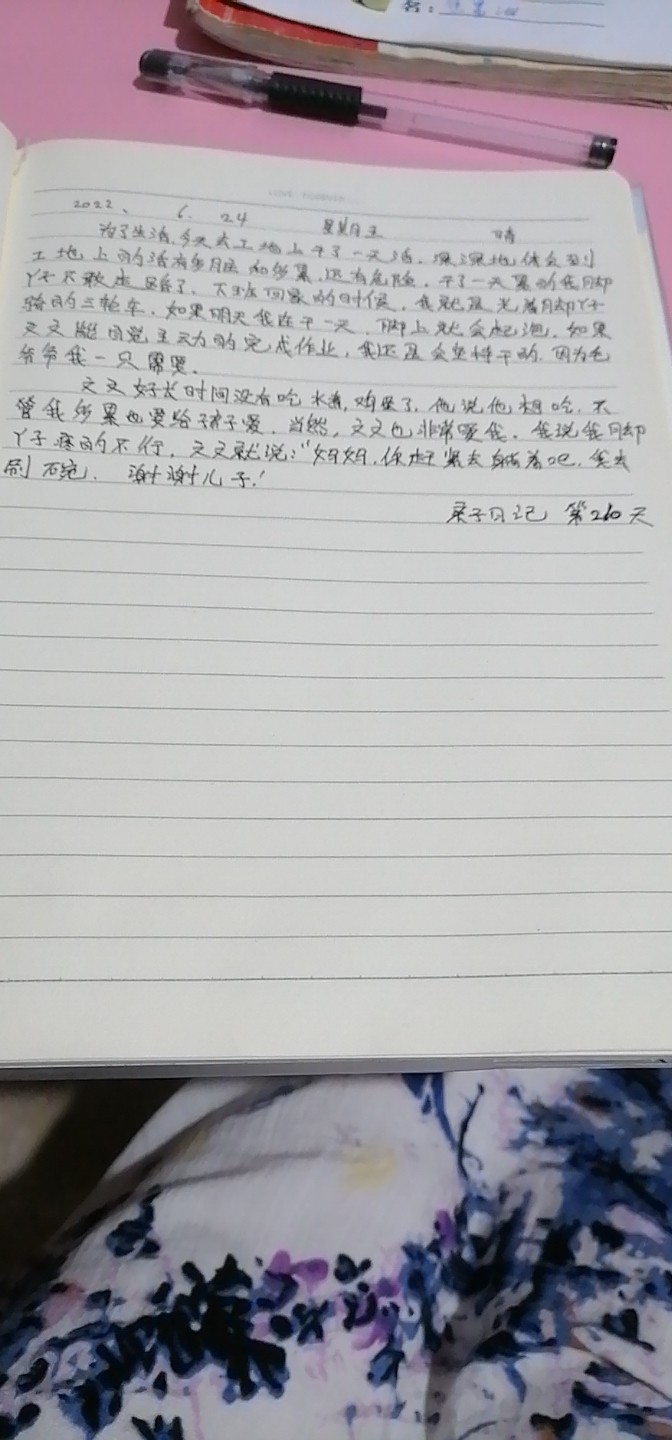 名:
LOVE FOREVER
2022、 6. 24 星期五 晴
为了生活,今天去工地上干了一天活,深深地体会到
工地上的活有多脏和多累,还有危险,干了一天累的我脚
丫子不敢走路了,下班回家的时候,我就是光着脚丫子
骑的三轮车,如果明天我连干一天,脚上就会起泡,如果
文文能自觉主动的完成作业,我还是会坚持干的,因为
爷爷我一只需要.
文文好长时间没有吃水煮,鸡蛋了,他说他想吃,不
管我多累也要给孩子爱.当然,文文也非常爱我.我说我脚
丫子疼的不行,文文就说:“妈妈,你赶紧去躺着吧,我去
刷碗. 谢谢儿子!
亲子日记 第260天